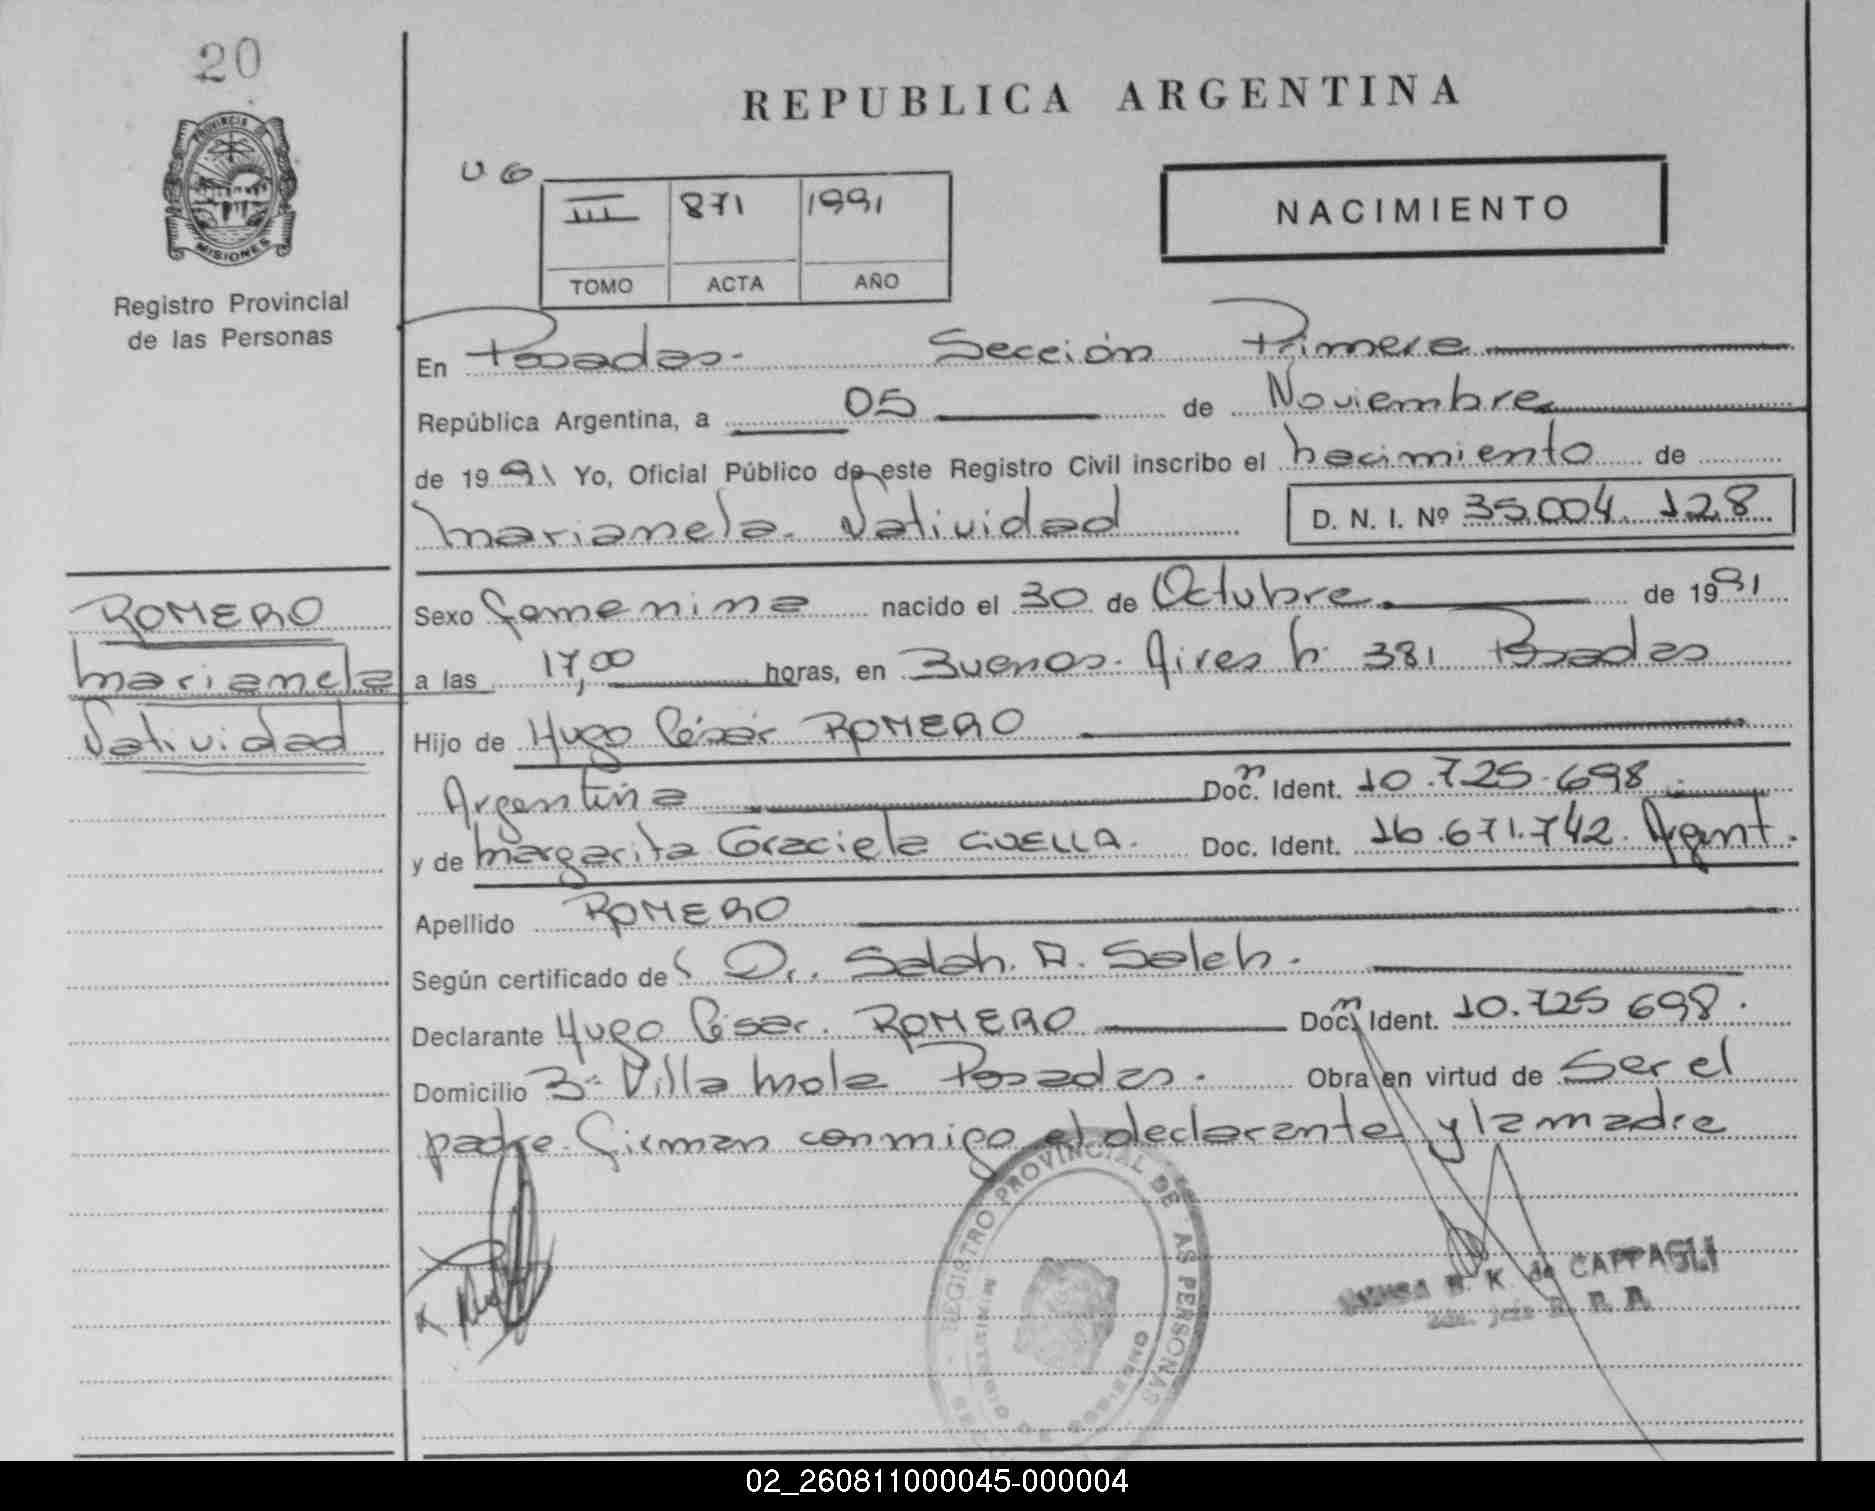 20
REPUBLICA ARGENTINA
PROVINCIA DE
MISIONES
Registro Provincial
de las Personas
U G
III 871 1991
TOMO ACTA AÑO
NACIMIENTO
En Posadas. Sección Primera
República Argentina, a 05 de Noviembre
de 1991 Yo, Oficial Público de este Registro Civil inscribo el nacimiento de
Marianela Natividad D. N. I. Nº 35.004.128
ROMERO
Marianela
Natividad
Sexo femenina nacido el 30 de Octubre de 1991
a las 17,00 horas, en Buenos Aires n 381 Posadas
Hijo de Hugo César ROMERO
Argentina Doc. Ident. 10.725.698
y de Margarita Graciela GUELLA. Doc. Ident. 16.671.742. Argent.
Apellido ROMERO
Según certificado de Dr. Salah. A. Saleh.
Declarante Hugo César. ROMERO Doc. Ident. 10.725 698.
Domicilio 3ª Villa Mola Posadas. Obra en virtud de Ser el
padre. firman conmigo el declarante y la madre
REGISTRO PROVINCIAL DE LAS PERSONAS
MINISTERIO DE GOBIERNO
K. de CAPPAGLI
02_260811000045-000004